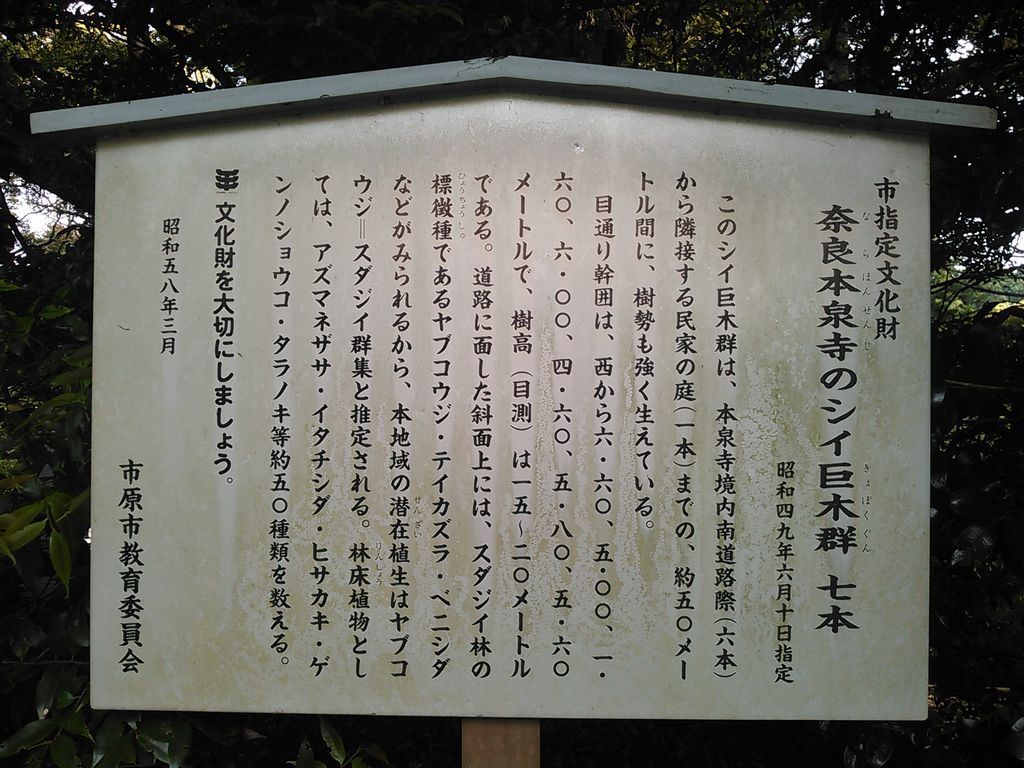 市指定文化財
奈良本泉寺のシイ巨木群 七本
ならほんせんじ
きょぼくぐん
昭和四九年六月十日指定
このシイ巨木群は、本泉寺境内南道路際(六本)
から隣接する民家の庭(一本)までの、約五〇メー
トル間に、樹勢も強く生えている。
目通り幹囲は、西から六・六〇、五・〇〇、一・
六〇、六・〇〇、四・六〇、五・八〇、五・六〇
メートルで、樹高(目測)は一五~二〇メートル
である。道路に面した斜面上には、スダジイ林の
標徴種であるヤブコウジ・テイカズラ・ベニシダ
ひょうちょうしゅ
などがみられるから、本地域の潜在植生はヤブコ
せんざい
ウジ=スダジイ群集と推定される。林床植物とし
りんしょう
ては、アズマネザサ・イタチシダ・ヒサカキ・ゲ
ンノショウコ・タラノキ等約五〇種類を数える。
文化財を大切にしましょう。
昭和五八年三月
市原市教育委員会